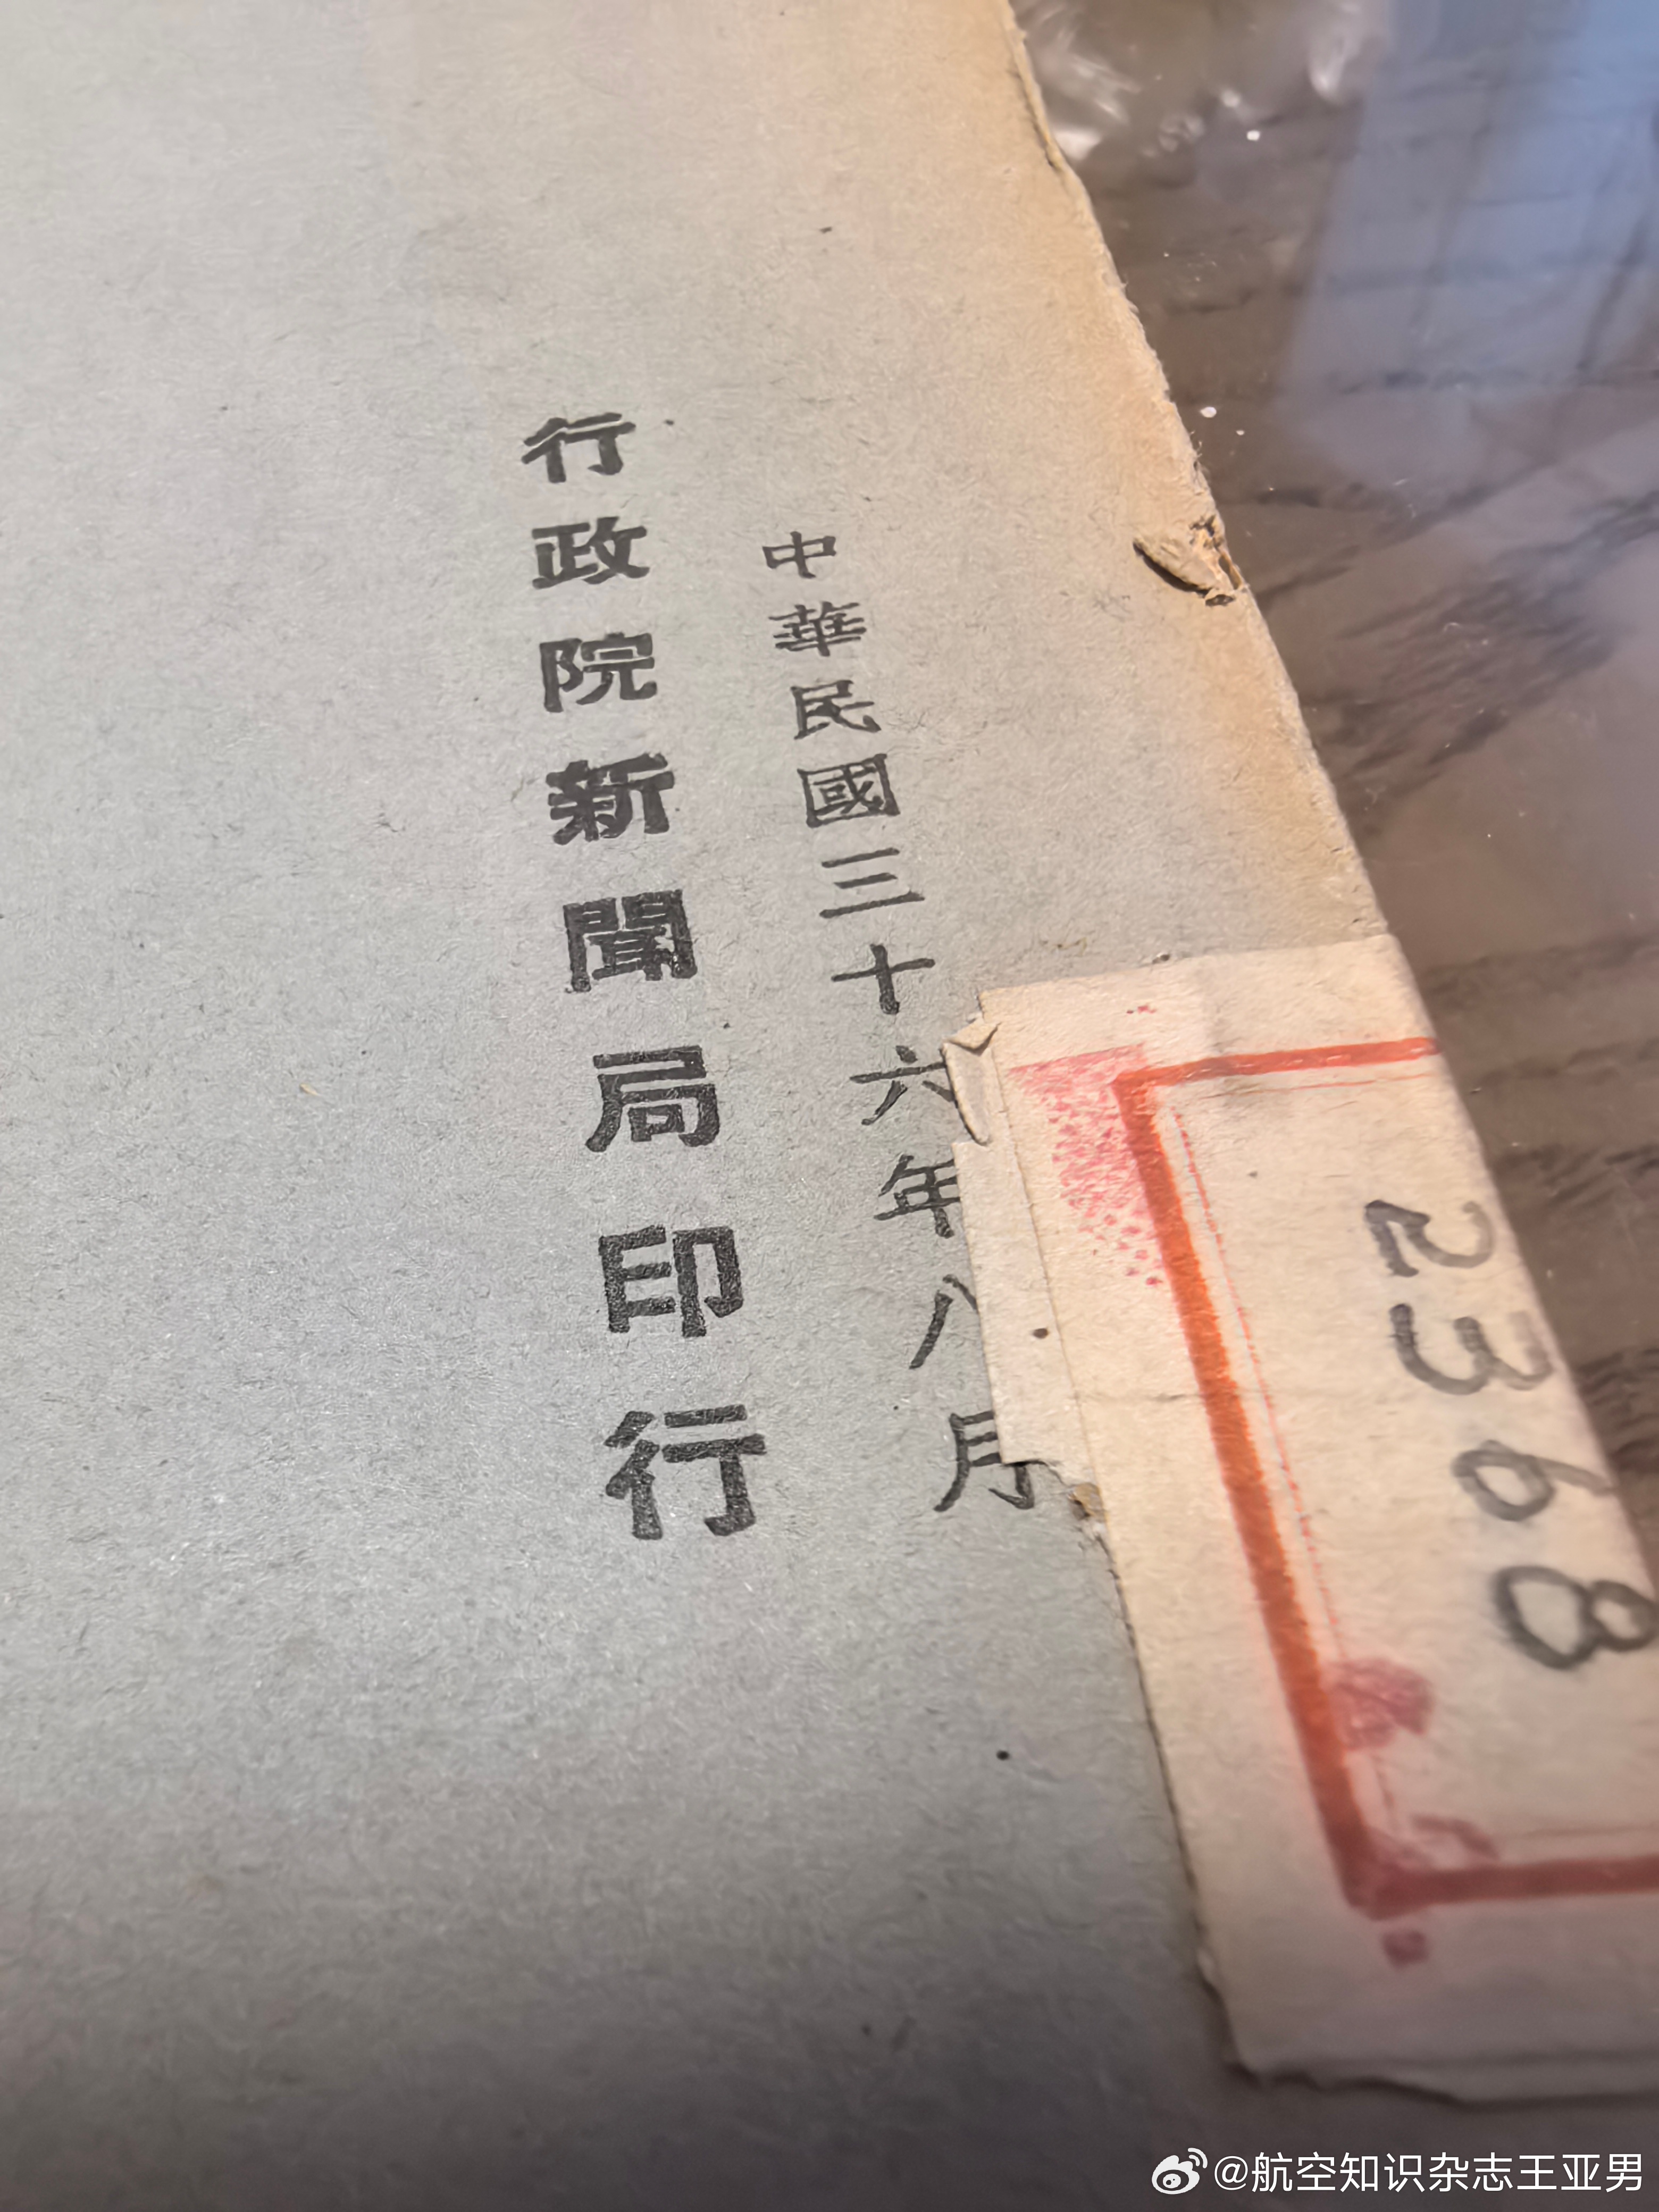 中華民國三十六年八月
行政院新聞局印行
2368
@航空知识杂志王亚男